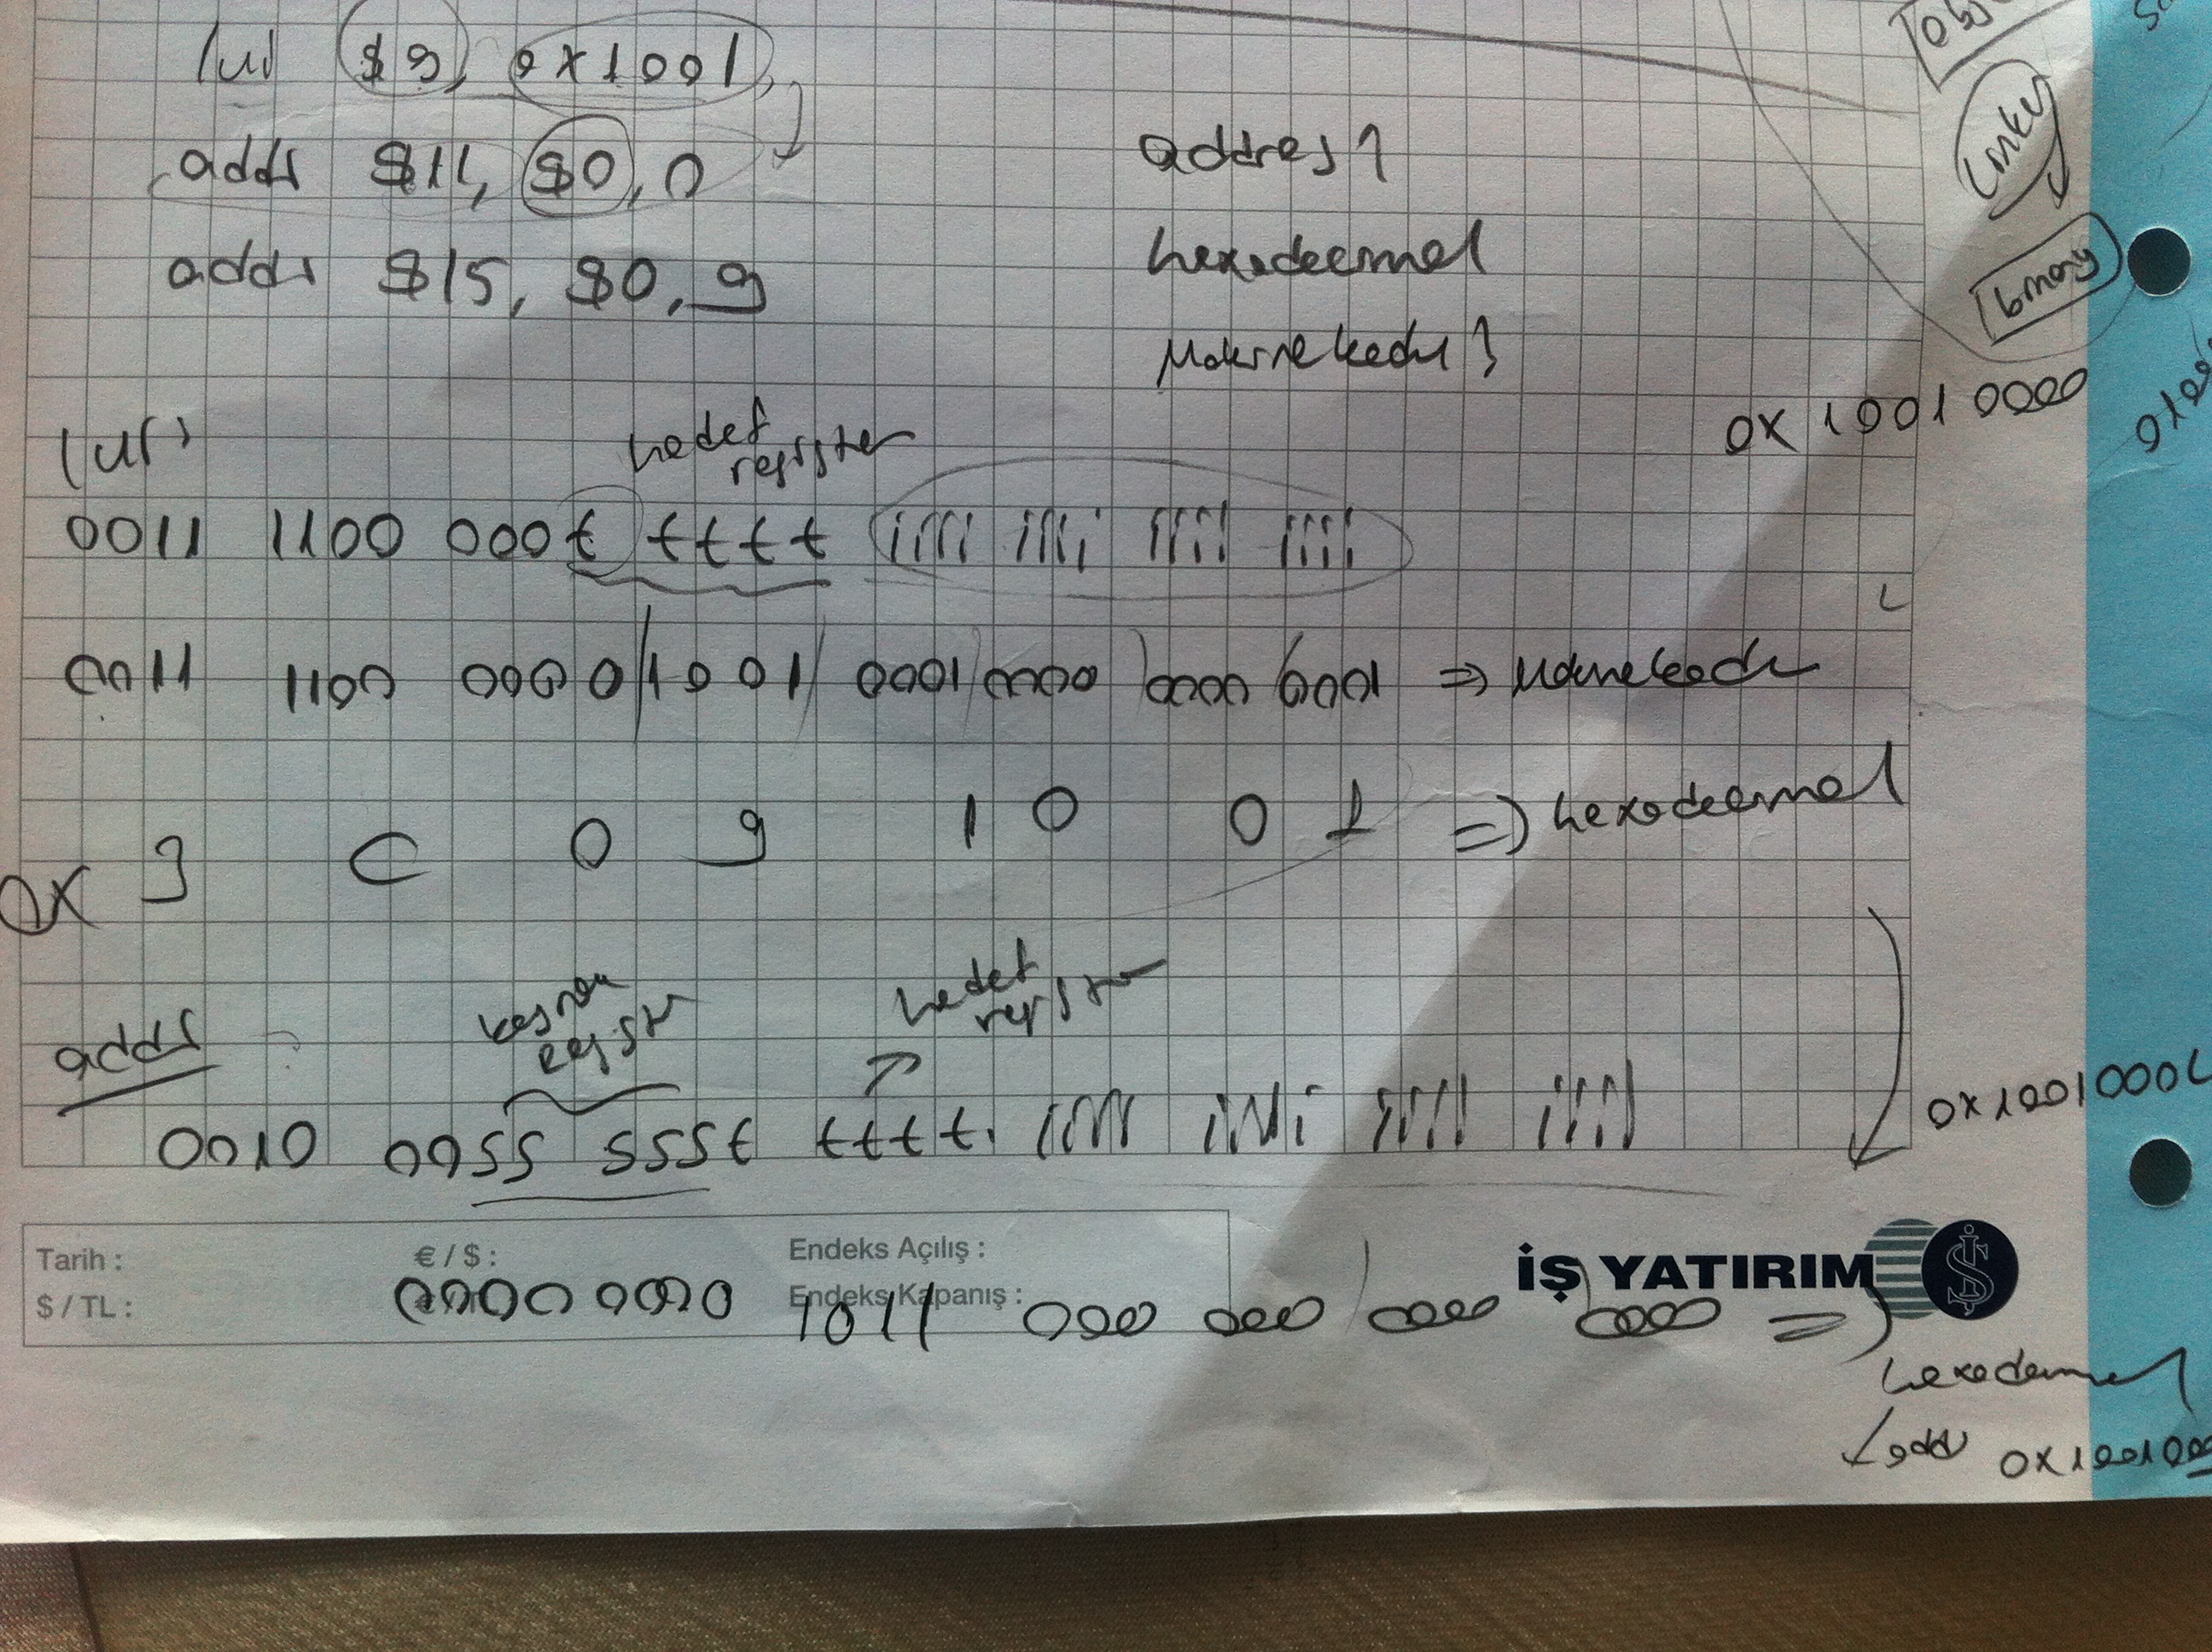 lui $9, 0x1001,
addi $11, $0, 0
addi $15, $0, 9
address
hexadecimal
Makine kodu
Obj
Linker
binary
0x10010000
lui
hedef
register
0011 1100 000t tttt iiii iiii iiii iiii
0011 1100 0000 1001 0001 0000 0000 0001 => Makine kodu
0x 3 C 0 9 1 0 0 1 => hexadecimal
addi
kaynak
register
hedef
register
0010 00ss ssst tttt iiii iiii iiii iiii
0x10010004
Tarih :
€ / $ :
Endeks Açılış :
$ / TL :
Endeks Kapanış :
İŞ YATIRIM
0000 0000 1011 000 000 0000 0000 =>
hexadecimal